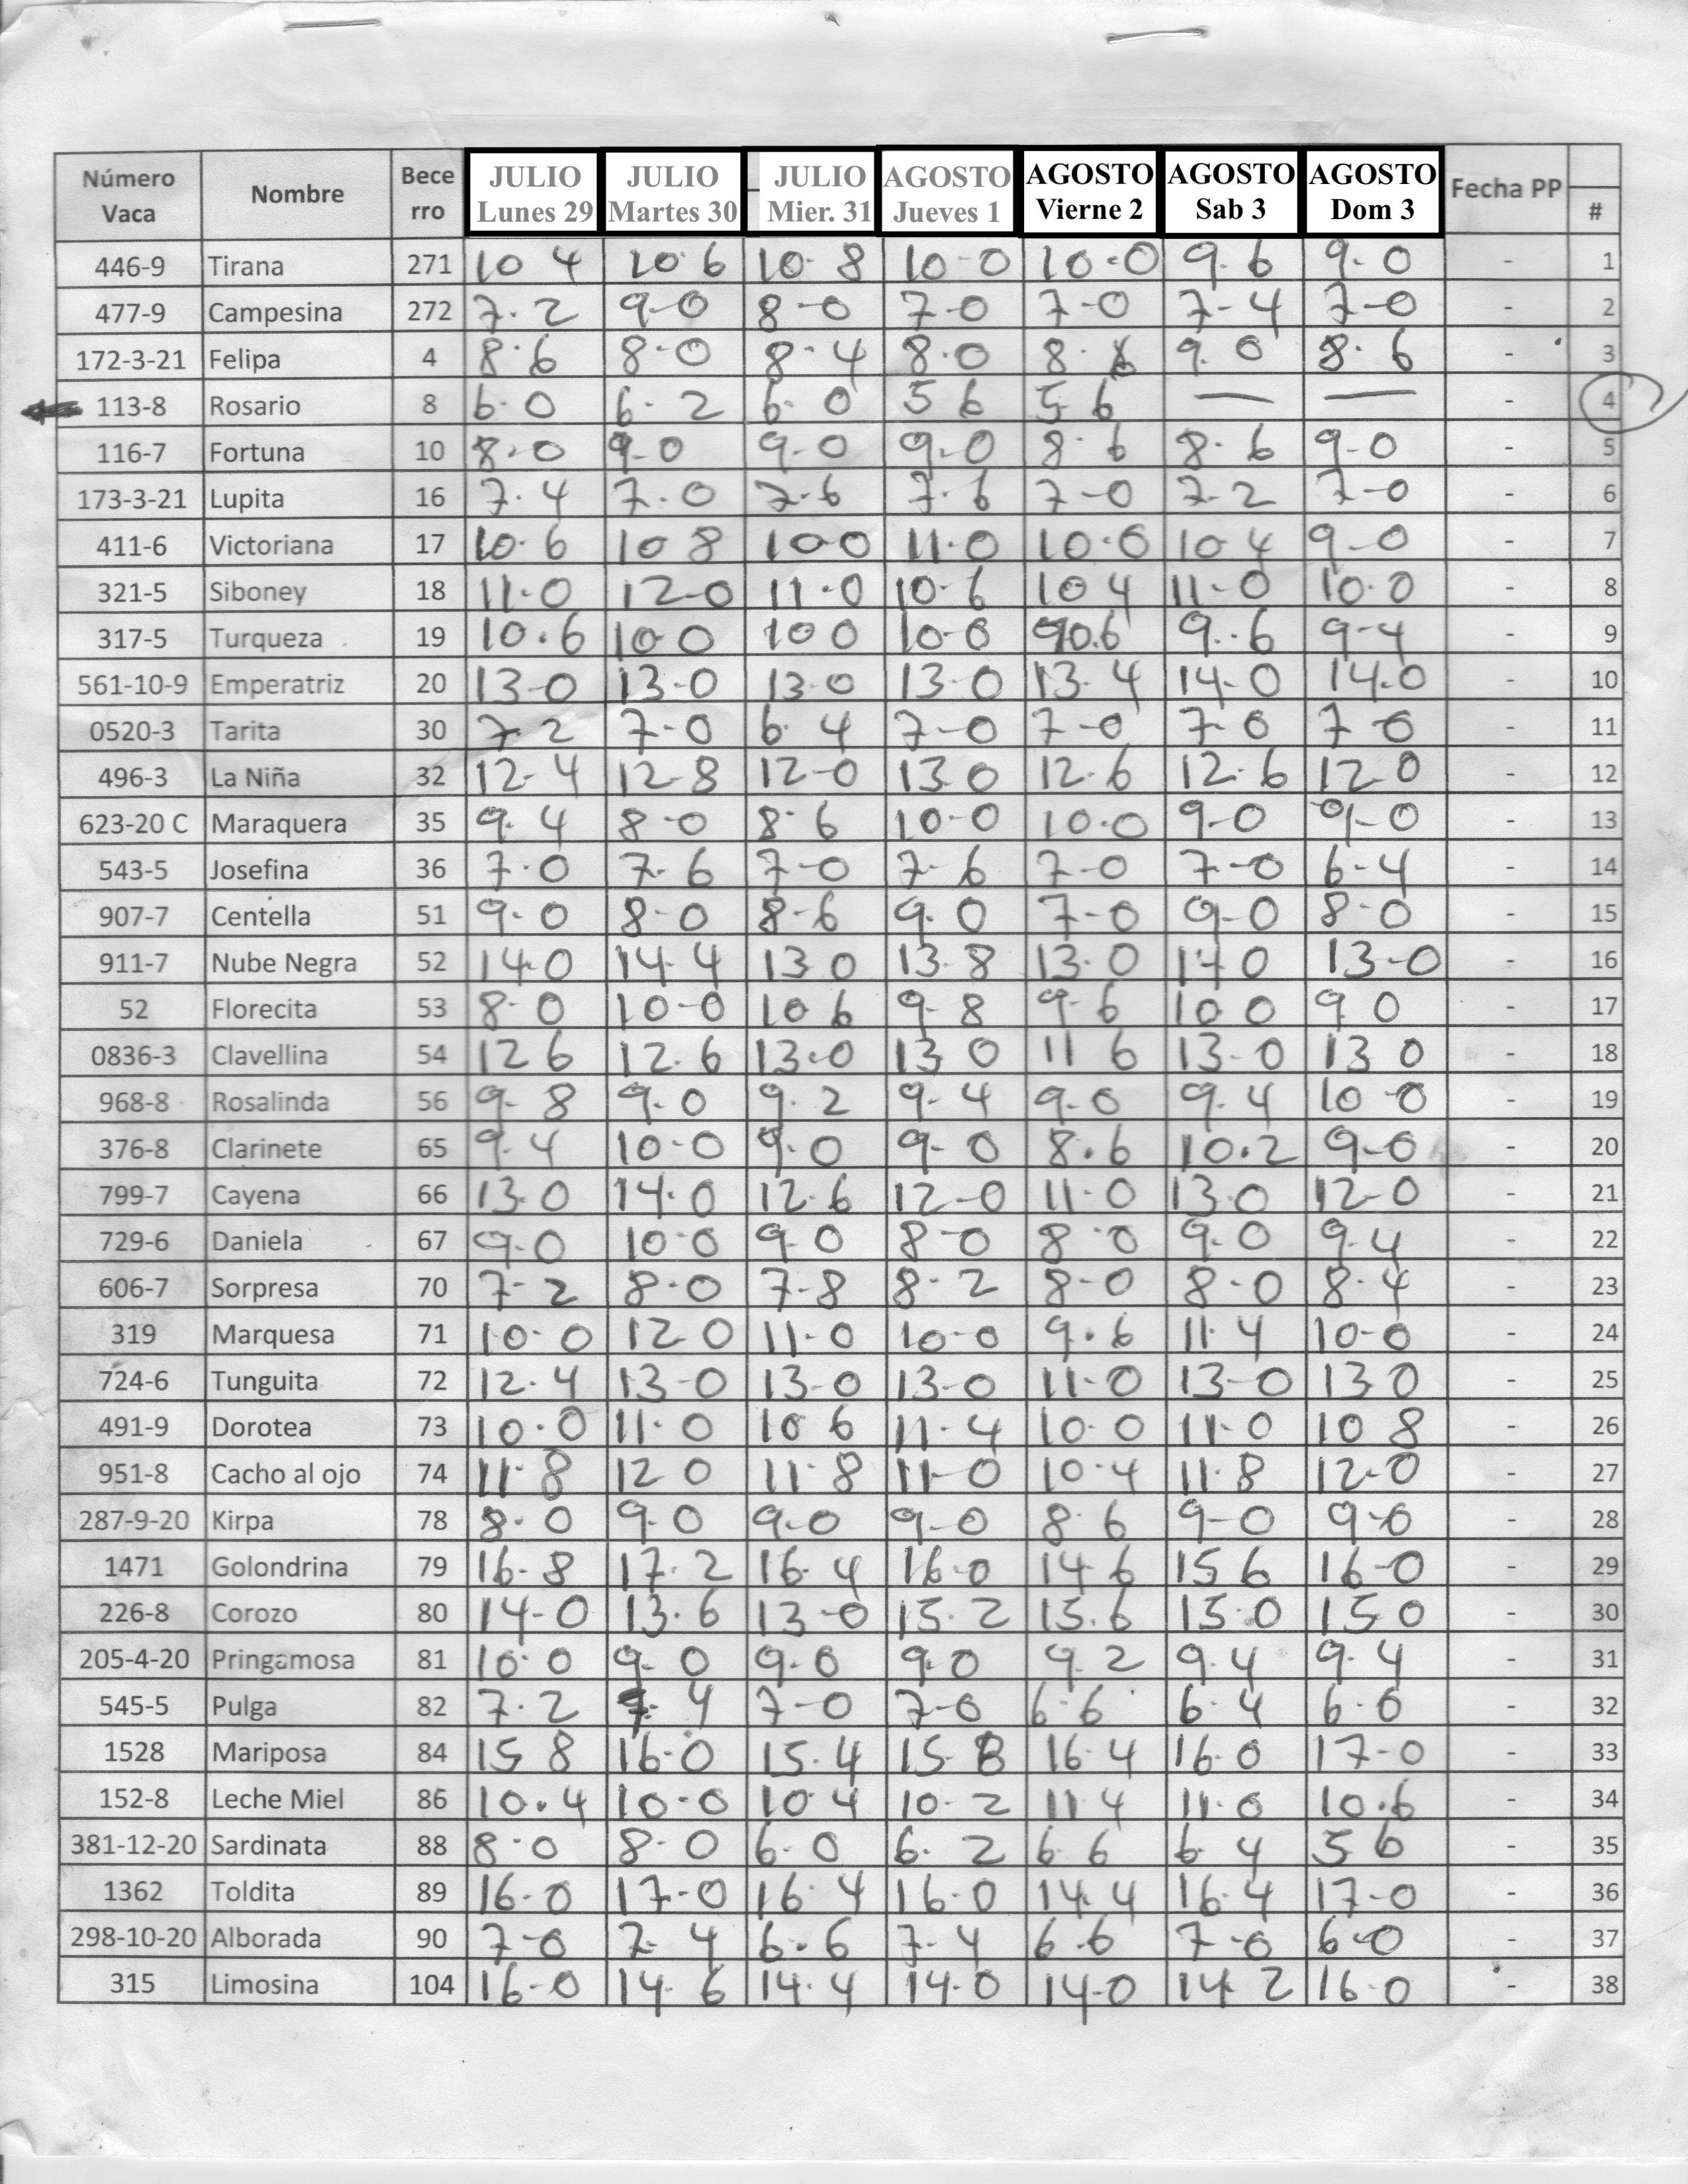 Número Vaca Nombre Bece rro JULIO Lunes 29 JULIO Martes 30 JULIO Mier. 31 AGOSTO Jueves 1 AGOSTO Vierne 2 AGOSTO Sab 3 AGOSTO Dom 3 Fecha PP #
446-9 Tirana 271 10 4 10.6 10.8 10-0 10.0 9.6 9.0 - 1
477-9 Campesina 272 7.2 9-0 8-0 7-0 7-0 7-4 7-0 - 2
172-3-21 Felipa 4 8.6 8.0 8.4 8.0 8. 9.0 8.6 - 3
113-8 Rosario 8 6.0 6.2 6.0 5 6 5 6 — — - 4
116-7 Fortuna 10 8.0 9.0 9.0 9.0 8.6 8.6 9-0 - 5
173-3-21 Lupita 16 7.4 7.0 7.6 7.6 7-0 7-2 7-0 - 6
411-6 Victoriana 17 10.6 10 8 10-0 11.0 10.0 10 4 9-0 - 7
321-5 Siboney 18 11.0 12-0 11.0 10.6 10 4 11-0 10.0 - 8
317-5 Turqueza 19 10.6 10 0 10 0 10-0 90.6 9.6 9-4 - 9
561-10-9 Emperatriz 20 13-0 13-0 13-0 13-0 13.4 14-0 14.0 - 10
0520-3 Tarita 30 7.2 7-0 6.4 7-0 7-0 7 0 7-0 - 11
496-3 La Niña 32 12-4 12-8 12-0 13 0 12.6 12.6 12-0 - 12
623-20 C Maraquera 35 9.4 8-0 8.6 10-0 10.0 9-0 9-0 - 13
543-5 Josefina 36 7.0 7.6 7-0 7-6 7-0 7-0 6-4 - 14
907-7 Centella 51 9-0 8-0 8-6 9.0 7-0 9-0 8-0 - 15
911-7 Nube Negra 52 14.0 14.4 13 0 13.8 13.0 14 0 13-0 - 16
52 Florecita 53 8-0 10-0 10 6 9-8 9-6 10 0 9 0 - 17
0836-3 Clavellina 54 12 6 12.6 13.0 13 0 11 6 13-0 13 0 - 18
968-8 Rosalinda 56 9-8 9.0 9.2 9-4 9.0 9.4 10-0 - 19
376-8 Clarinete 65 9-4 10-0 9.0 9-0 8.6 10.2 9-0 - 20
799-7 Cayena 66 13.0 14.0 12.6 12-0 11.0 13.0 12-0 - 21
729-6 Daniela 67 9-0 10-0 9.0 8-0 8.0 9.0 9.4 - 22
606-7 Sorpresa 70 7-2 8.0 7-8 8-2 8-0 8-0 8.4 - 23
319 Marquesa 71 10-0 12 0 11-0 10-0 9.6 11.4 10-0 - 24
724-6 Tunguita 72 12.4 13-0 13-0 13-0 11-0 13-0 13 0 - 25
491-9 Dorotea 73 10.0 11.0 10 6 11-4 10.0 11.0 10 8 - 26
951-8 Cacho al ojo 74 11.8 12 0 11.8 11-0 10.4 11.8 12-0 - 27
287-9-20 Kirpa 78 8.0 9.0 9-0 9-0 8.6 9-0 9-0 - 28
1471 Golondrina 79 16-8 17.2 16.4 16.0 14 6 15 6 16-0 - 29
226-8 Corozo 80 14-0 13.6 13-0 15.2 15.6 15.0 15 0 - 30
205-4-20 Pringamosa 81 10.0 9-0 9.0 9.0 9.2 9.4 9.4 - 31
545-5 Pulga 82 7.2 4 7-0 7-0 6.6 6.4 6.0 - 32
1528 Mariposa 84 15 8 16-0 15.4 15-8 16.4 16.0 17-0 - 33
152-8 Leche Miel 86 10.4 10-0 10 4 10-2 11 4 11.0 10.6 - 34
381-12-20 Sardinata 88 8.0 8.0 6.0 6.2 6.6 6.4 5 6 - 35
1362 Toldita 89 16-0 17-0 16.4 16.0 14.4 16.4 17-0 - 36
298-10-20 Alborada 90 7-0 7-4 6.6 7-4 6.6 7-0 6-0 - 37
315 Limosina 104 16-0 14.6 14.4 14.0 14-0 14 2 16.0 - 38